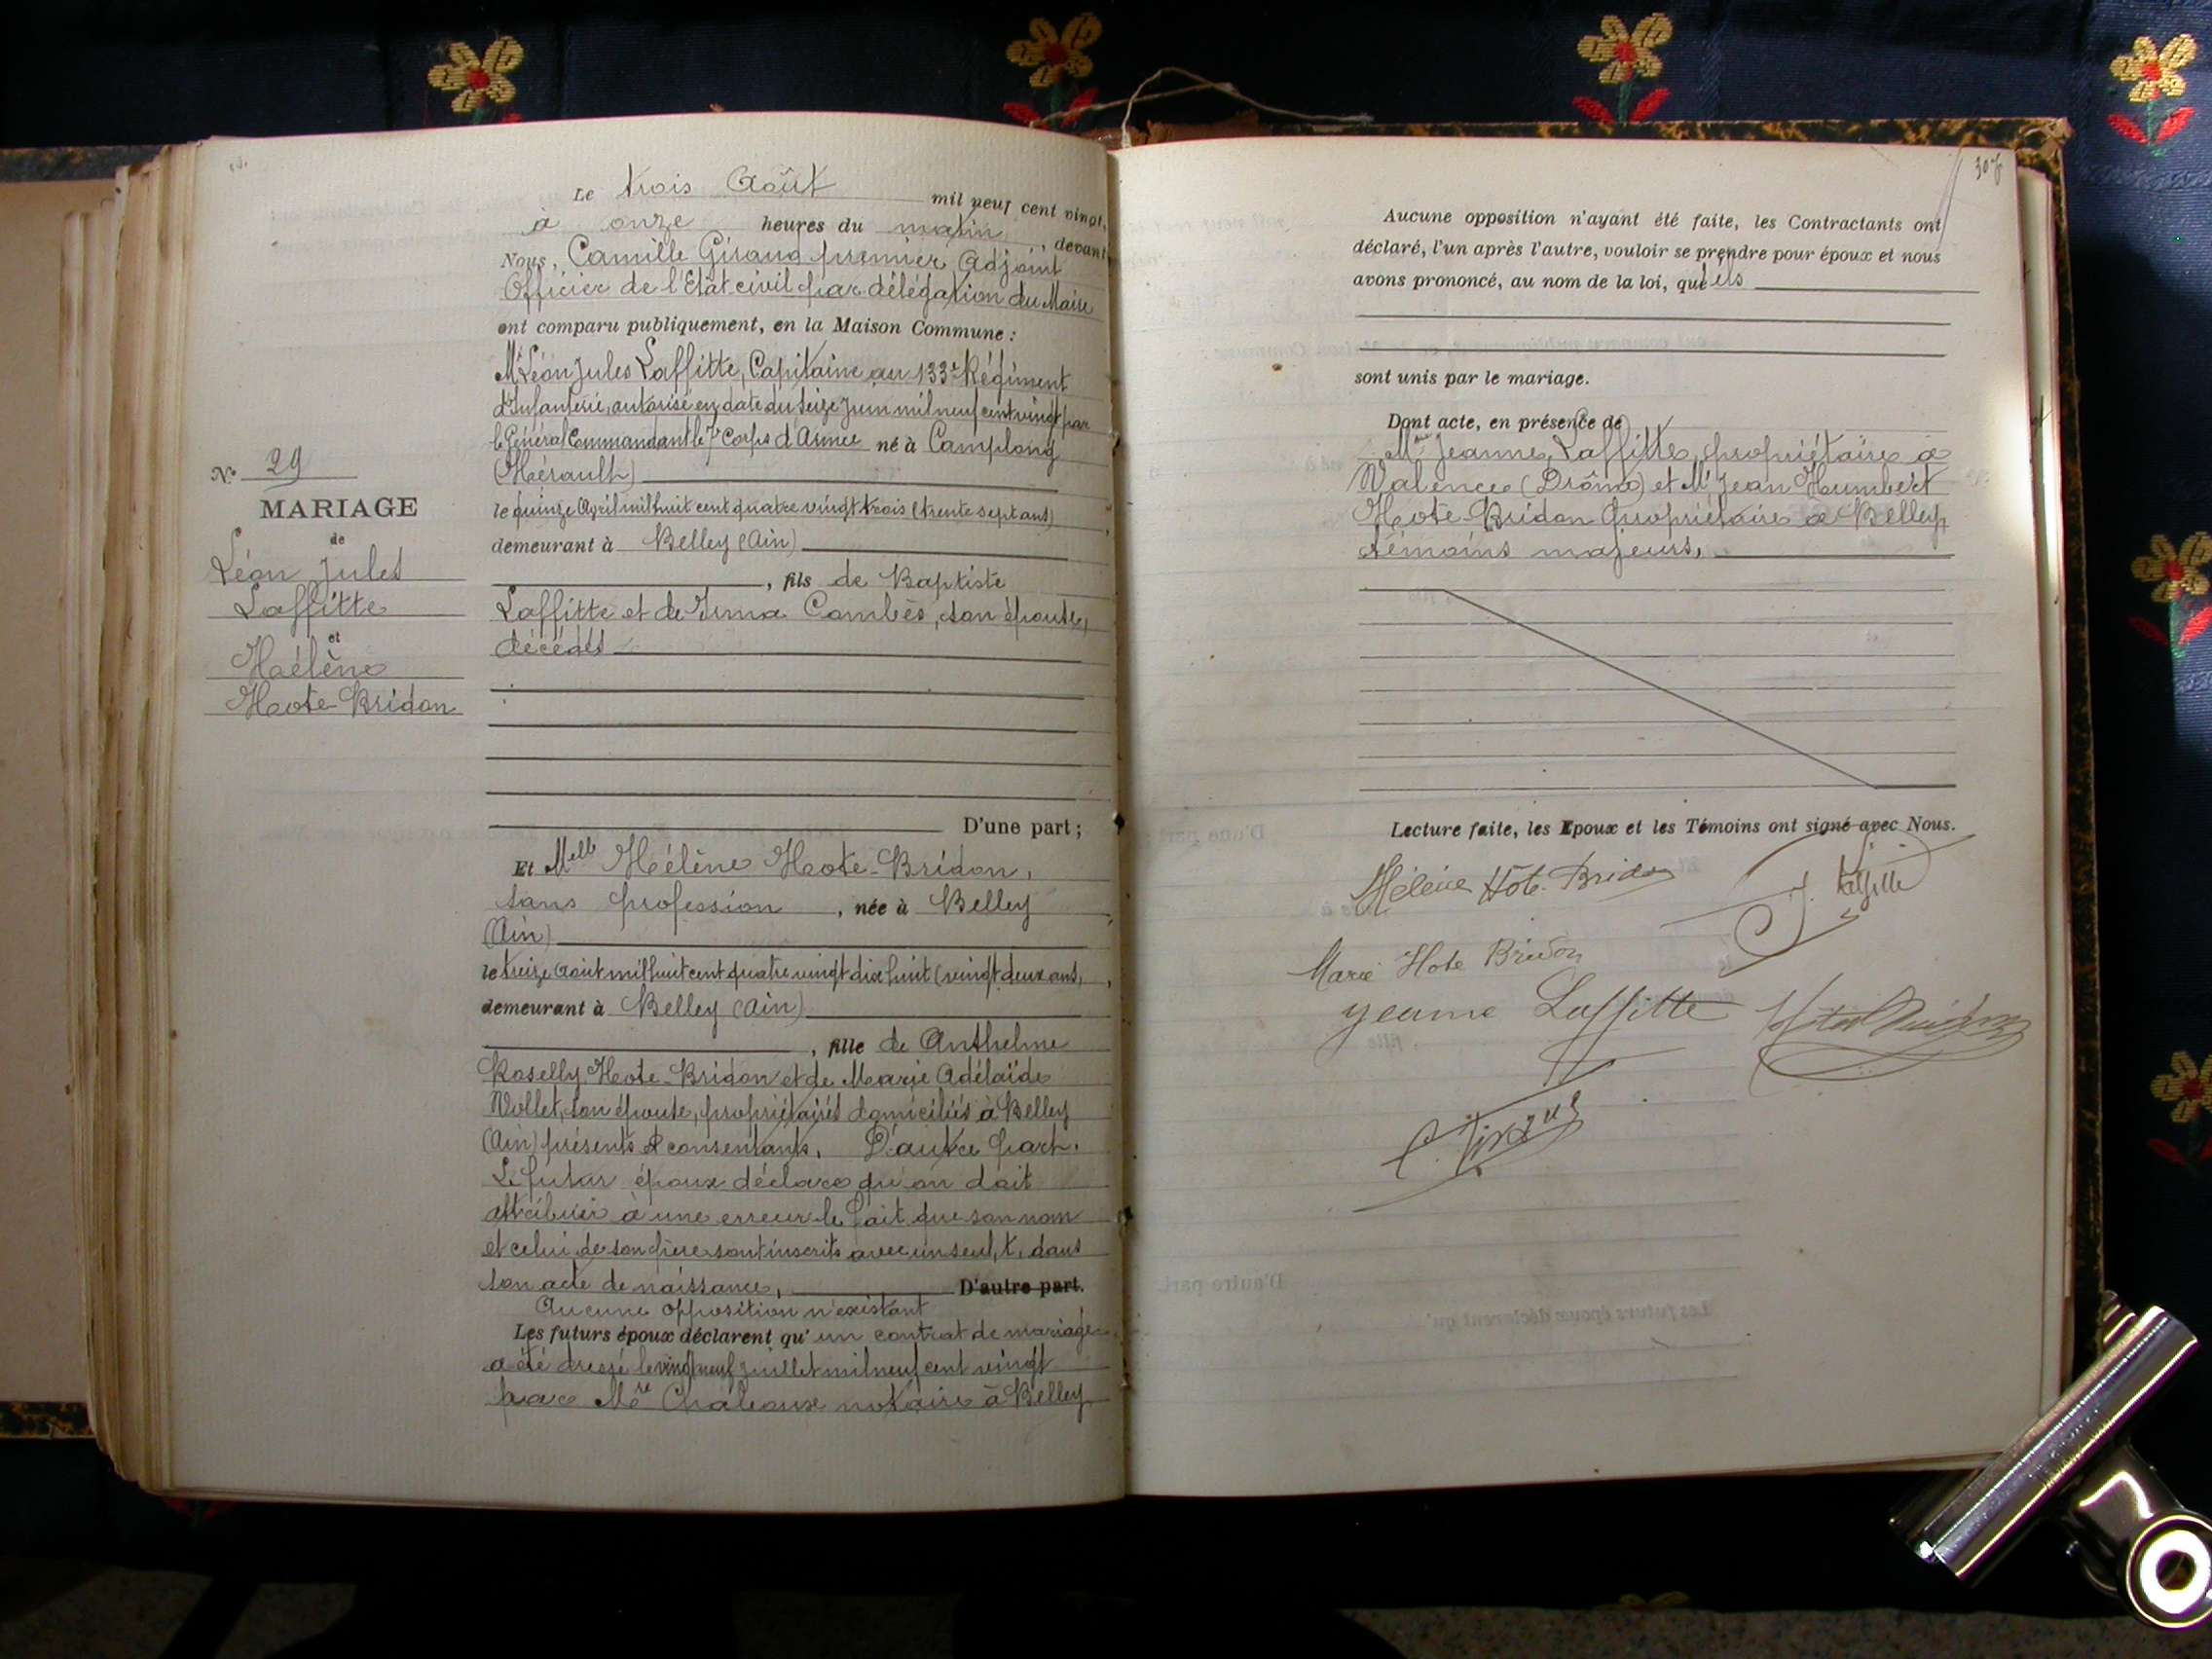 N° 29
MARIAGE
de
Léon Jules
Laffitte
et
Hélène
Hote-Bridon
Le trois Août mil neuf cent vingt,
à onze heures du matin, devant
Nous, Camille Giraud premier Adjoint
Officier de l'Etat civil par délégation du Maire
ont comparu publiquement, en la Maison Commune :
Mr Léon Jules Laffitte, Capitaine au 133e Régiment
d'Infanterie, autorisé en date du seize Juin mil neuf cent vingt par
le Général Commandant le 7e Corps d'Armée né à Camplong
(Hérault)
le quinze Avril mil huit cent quatre vingt trois (trente sept ans)
demeurant à Belley (Ain)
, fils de Baptiste
Laffitte et de Irma Combès, son épouse,
décédés
D'une part ;
Et Melle Hélène Hote-Bridon,
sans profession, née à Belley
(Ain)
le treize Août mil huit cent quatre vingt dix huit (vingt deux ans,
demeurant à Belley (Ain)
, fille de Anthelme
Roselly Hote-Bridon et de Marie Adélaïde
Vollet, son épouse, propriétaires domiciliés à Belley
(Ain) présents et consentants. D'autre part.
Le futur époux déclare qu'on doit
attribuer à une erreur le fait que son nom
et celui de son père sont inscrits avec un seul, t, dans
son acte de naissance, D'autre part.
Aucune opposition n'existant
Les futurs époux déclarent qu'un contrat de mariage
a été dressé le vingt neuf Juillet mil neuf cent vingt
par Me notaire à Belley
307
Aucune opposition n'ayant été faite, les Contractants ont
déclaré, l'un après l'autre, vouloir se prendre pour époux et nous
avons prononcé, au nom de la loi, qu'ils
sont unis par le mariage.
Dont acte, en présence de
Jeanne Laffitte, propriétaire à
Valence (Drôme) et Mr Jean Humbert
Hote-Bridon propriétaire à Belley
témoins majeurs.
Lecture faite, les Epoux et les Témoins ont signé avec Nous.
Hélène Hote-Bridon
J. Laffitte
Marie Hote Bridon
Jeanne Laffitte
Hote Bridon
C. Giraud